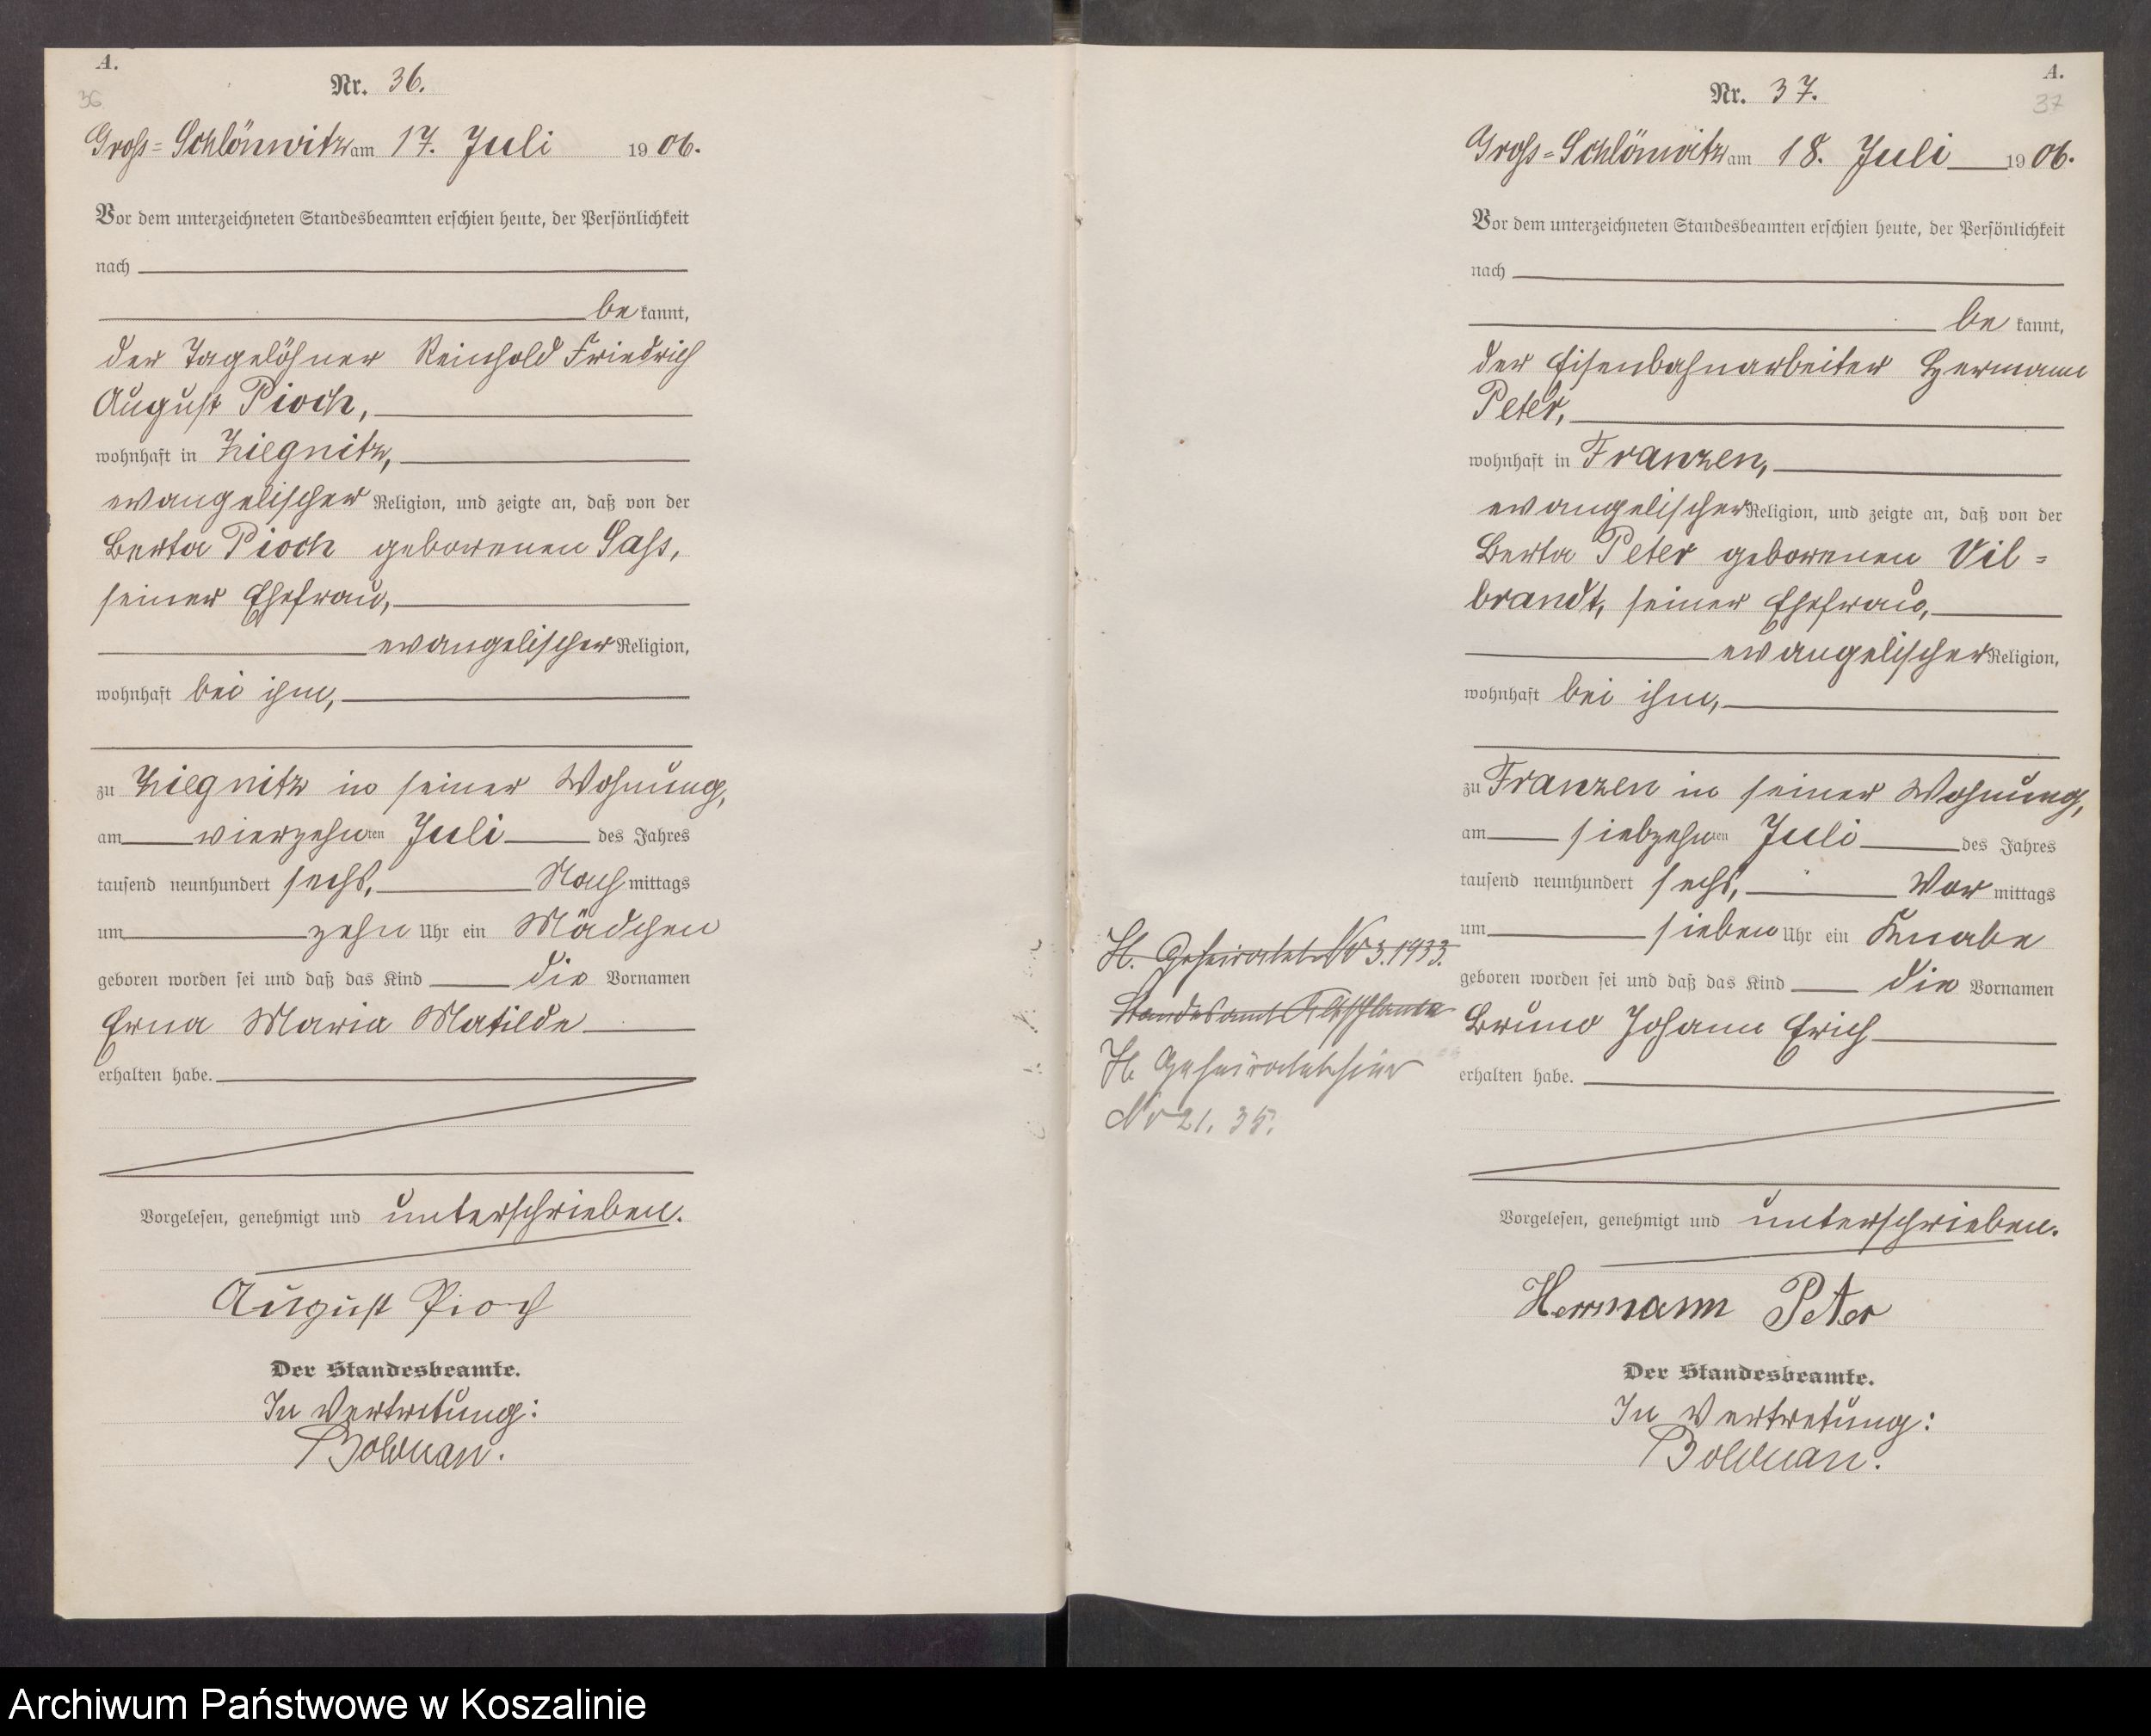 A.
36
Nr. 36.
Gross=Schlönwitz am 17. Juli 1906.
Vor dem unterzeichneten Standesbeamten erschien heute, der Persönlichkeit
nach
be kannt,
der Tagelöhner Reinhold Friedrich
August Pioch,
wohnhaft in Ziegnitz,
evangelischer Religion, und zeigte an, daß von der
Berta Pioch geborenen Sass,
seiner Ehefrau,
evangelischer Religion,
wohnhaft bei ihm,
zu Ziegnitz in seiner Wohnung,
am vierzehn ten Juli des Jahres
tausend neunhundert sechs, Nach mittags
um zehn Uhr ein Mädchen
geboren worden sei und daß das Kind die Vornamen
Erna Maria Matilde
erhalten habe.
Vorgelesen, genehmigt und unterschrieben.
August Pioch
Der Standesbeamte.
In Vertretung:
Bolduan.
A.
37
Nr. 37.
Gross=Schlönwitz am 18. Juli 1906.
Vor dem unterzeichneten Standesbeamten erschien heute, der Persönlichkeit
nach
be kannt,
der Eisenbahnarbeiter Hermann
Peter,
wohnhaft in Franzen,
evangelischer Religion, und zeigte an, daß von der
Berta Peter geborenen Vil=
brandt, seiner Ehefrau,
evangelischer Religion,
wohnhaft bei ihm,
zu Franzen in seiner Wohnung,
am siebzehn ten Juli des Jahres
tausend neunhundert sechs, Vor mittags
um sieben Uhr ein Knabe
geboren worden sei und daß das Kind die Vornamen
Bruno Johann Erich
erhalten habe.
H. Geheiratet Nr 3.1933.
Standesamt
H. Geheiratet hier
Nr 21. 35.
Vorgelesen, genehmigt und unterschrieben.
Herrmann Peter
Der Standesbeamte.
In Vertretung:
Bolduan.
Archiwum Państwowe w Koszalinie